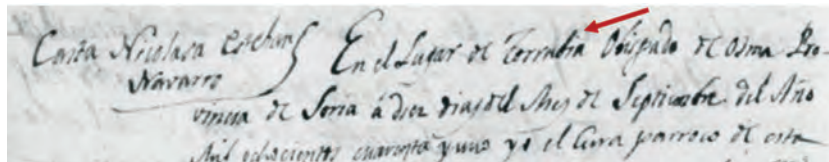 Casta Nicolasa Esteban
Navarro
En el Lugar de Torrubia Obispado de Osma Pro-
vincia de Soria à diez dias del Mes de Septiembre del Año
Mil ochocientos cuarenta y uno yo el Cura parroco de esta